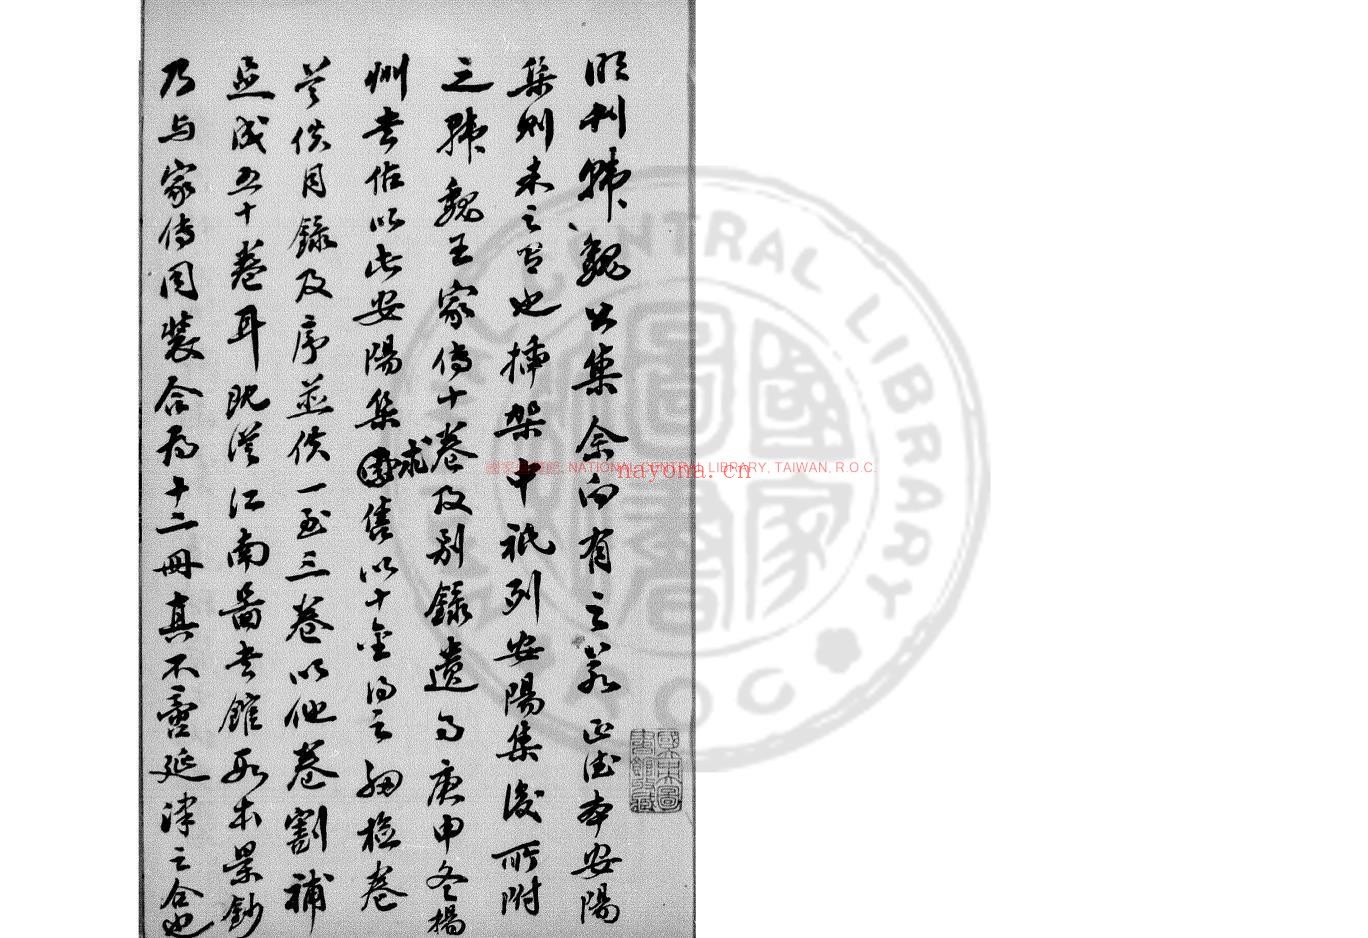 明刊韩魏公集余向有之若正德本安陽
集則未之見也插架中祇列安陽集後所附
之韩魏王家傳十卷及别錄遺事庚申冬揚
州書估以此安陽集求售以十金得之細檢卷
首佚目錄及序並佚一至三卷以他卷割補
並成五十卷耳既從江南圖書館所藏本景鈔
乃与家傳同裝合為十二冊真不啻延津之合也
國家圖書館, NATIONAL CENTRAL LIBRARY, TAIWAN, R.O.C.
nayona.cn
NATIONAL CENTRAL LIBRARY
R.O.C
國家圖書
國立中央圖書館收藏